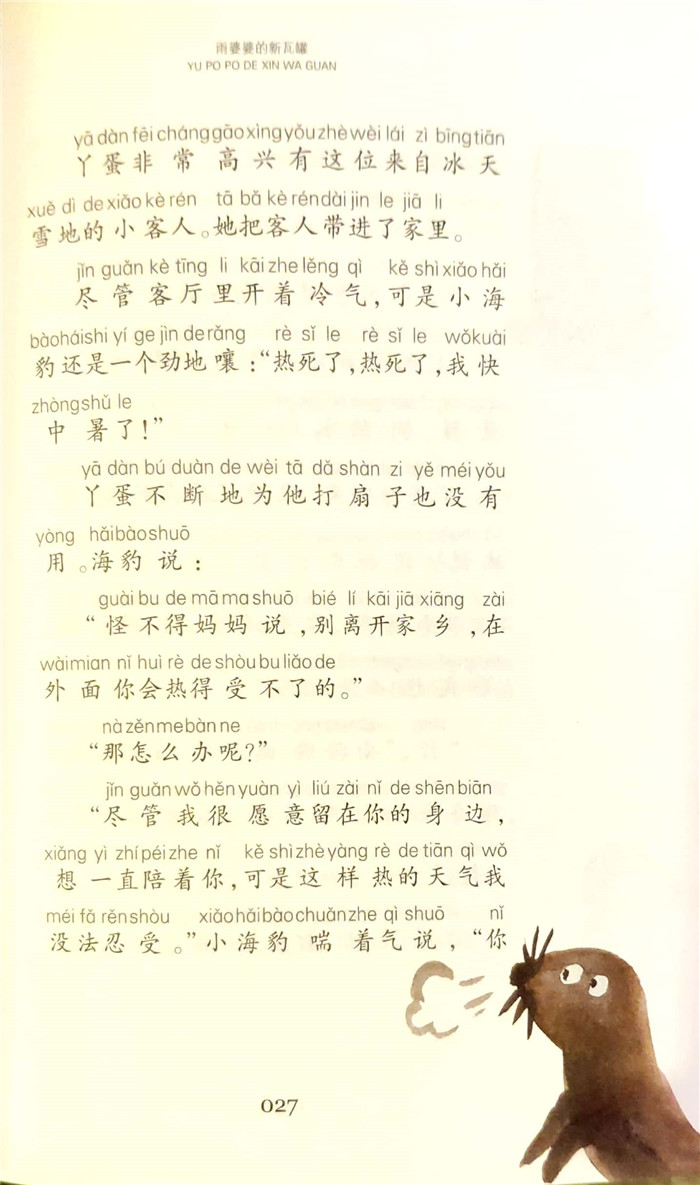 雨婆婆的新瓦罐
YU PO PO DE XIN WA GUAN
yā dàn fēi cháng gāo xìng yǒu zhè wèi lái zì bīng tiān
丫蛋非常高兴有这位来自冰天
xuě dì de xiǎo kè rén tā bǎ kè rén dài jìn le jiā li
雪地的小客人。她把客人带进了家里。
jǐn guǎn kè tīng li kāi zhe lěng qì kě shì xiǎo hǎi
尽管客厅里开着冷气,可是小海
bào hái shi yí ge jìn de rǎng rè sǐ le rè sǐ le wǒ kuài
豹还是一个劲地嚷:“热死了,热死了,我快
zhòng shǔ le
中暑了!”
yā dàn bú duàn de wèi tā dǎ shàn zi yě méi yǒu
丫蛋不断地为他打扇子也没有
yòng hǎi bào shuō
用。海豹说:
guài bu de mā ma shuō bié lí kāi jiā xiāng zài
“怪不得妈妈说,别离开家乡,在
wài mian nǐ huì rè de shòu bu liǎo de
外面你会热得受不了的。”
nà zěn me bàn ne
“那怎么办呢?”
jǐn guǎn wǒ hěn yuàn yì liú zài nǐ de shēn biān
“尽管我很愿意留在你的身边,
xiǎng yi zhí péi zhe nǐ kě shì zhè yàng rè de tiān qì wǒ
想一直陪着你,可是这样热的天气我
méi fǎ rěn shòu xiǎo hǎi bào chuǎn zhe qì shuō nǐ
没法忍受。”小海豹喘着气说,“你
027